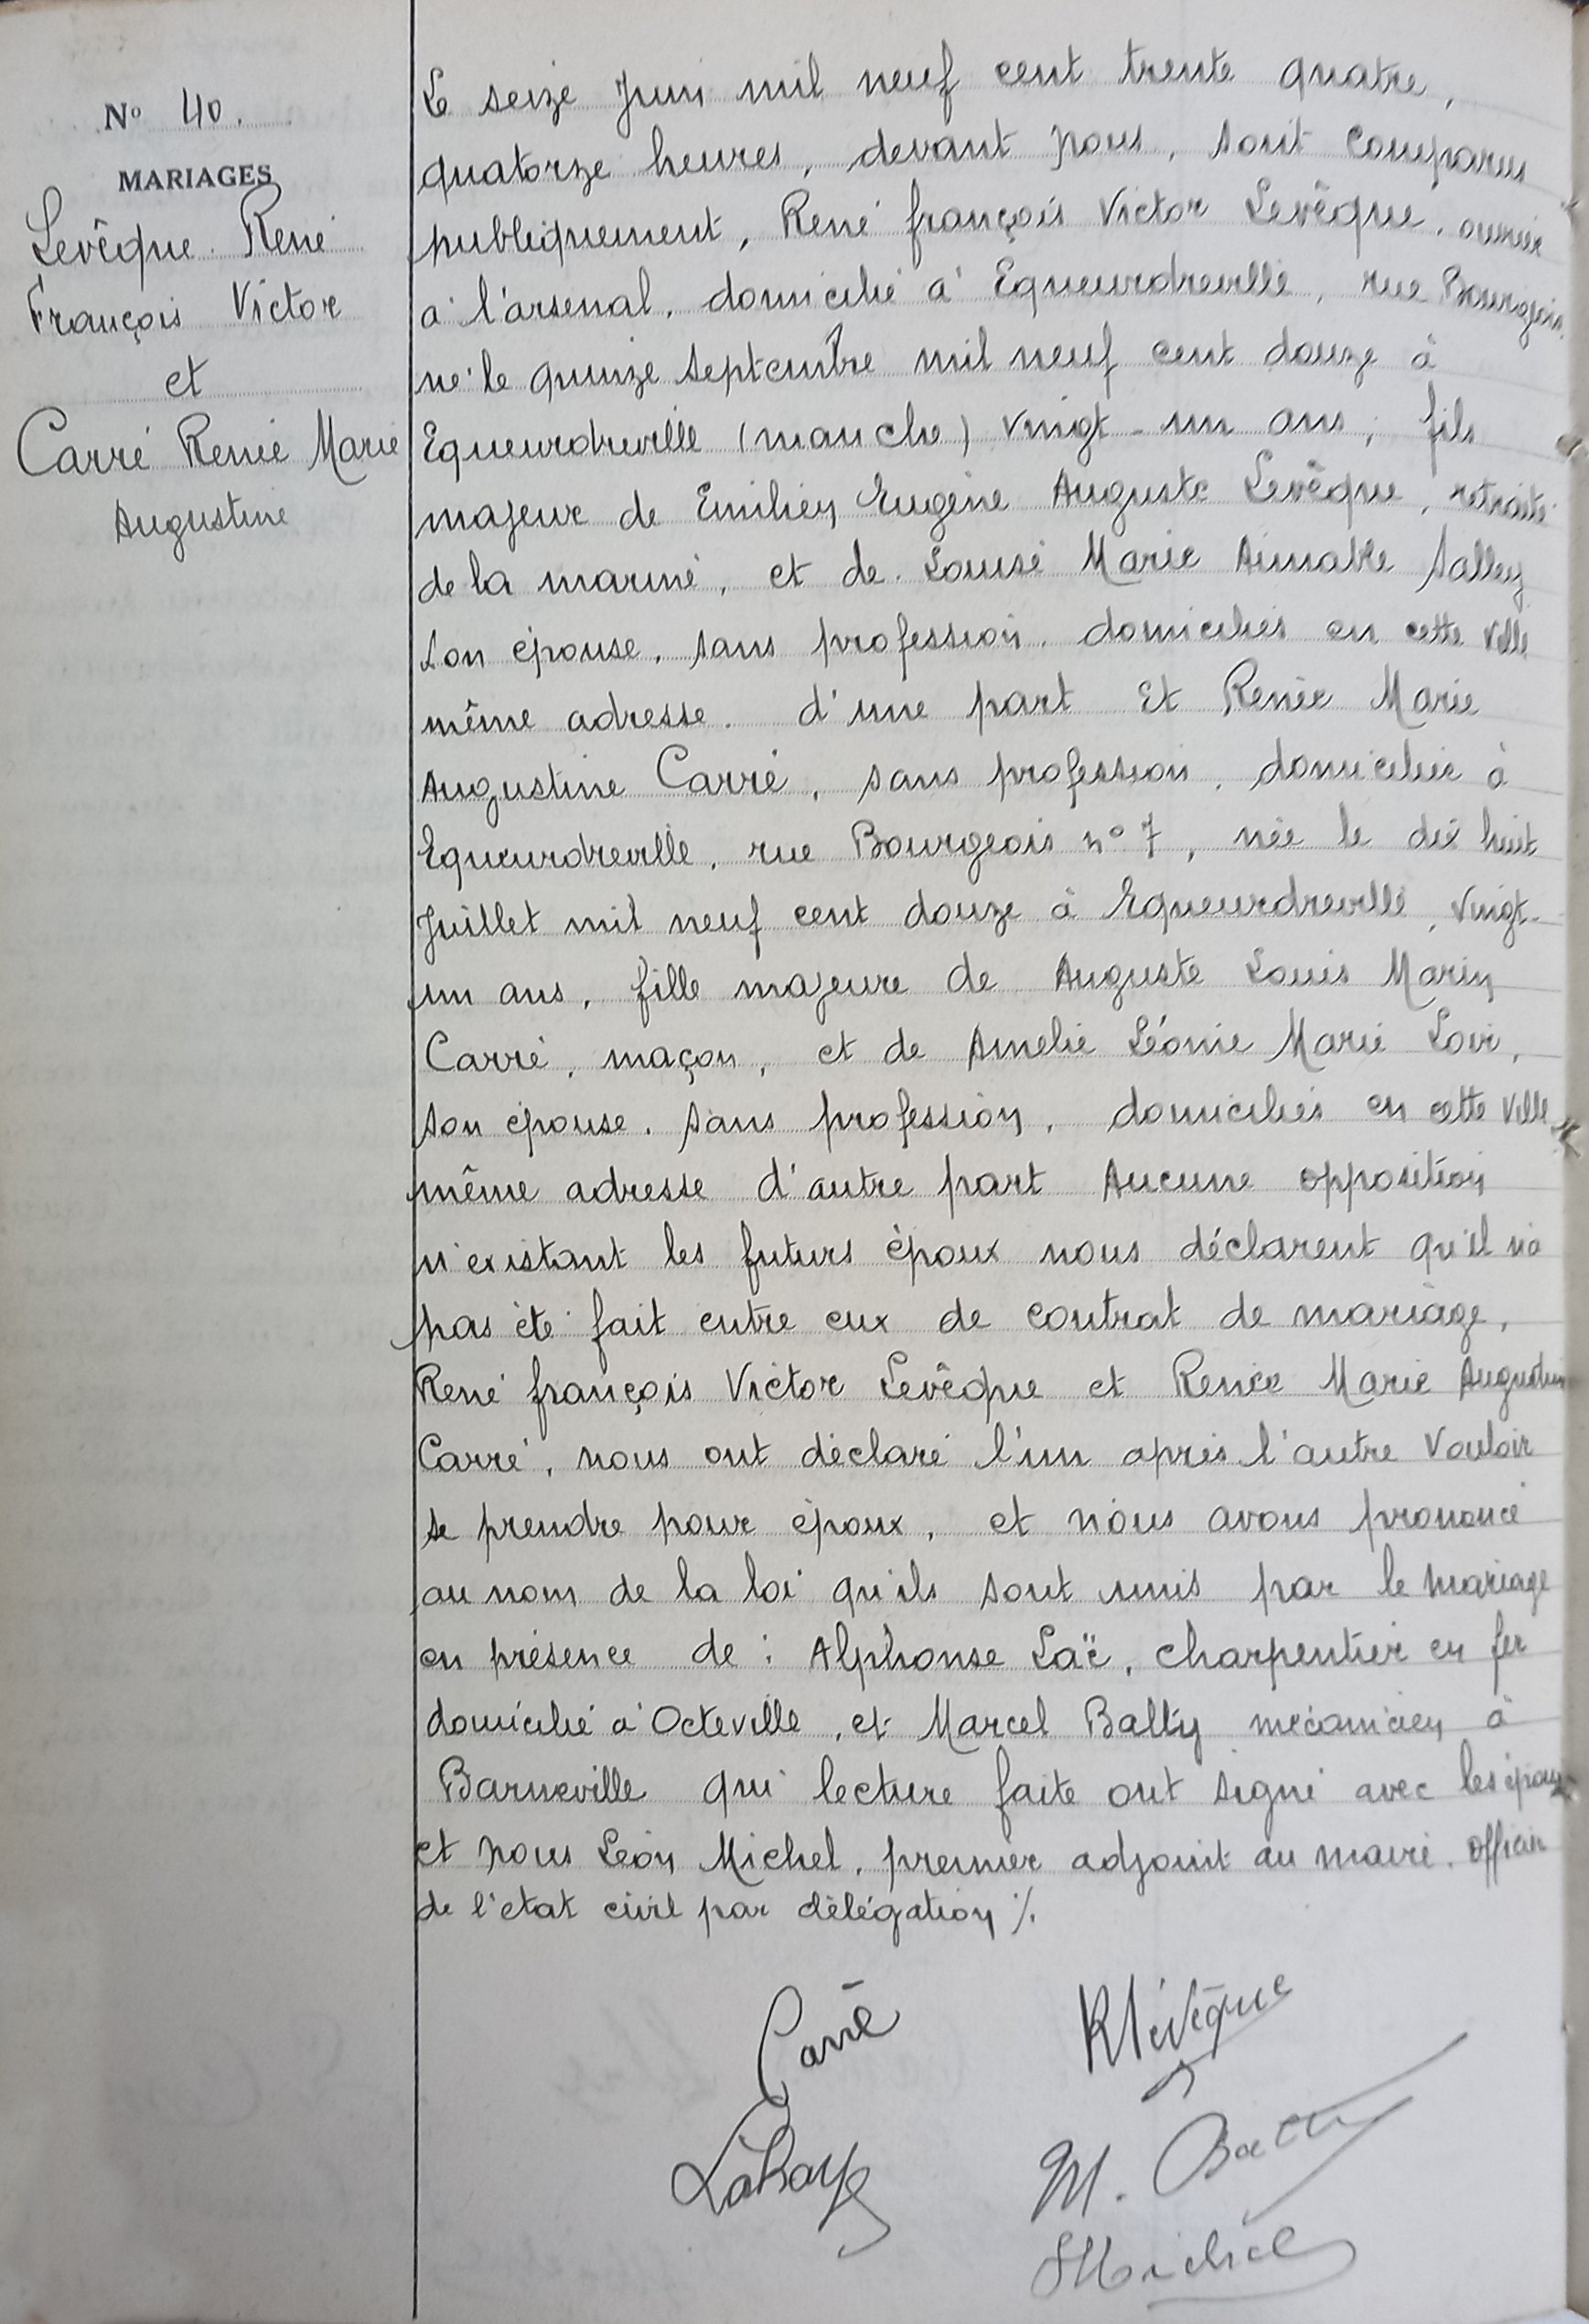 N° 40.
MARIAGES
Levêque René
François Victor
et
Carré Renée Marie
Augustine
Le seize Juin mil neuf cent trente quatre,
quatorze heures, devant nous, sont comparus
publiquement, René françois Victor Levêque, ouvrier
à l'arsenal, domicilié à Equeurdreville, rue Bourgeois
né le quinze septembre mil neuf cent douze à
Equeurdreville (manche) vingt-un ans, fils
majeur de Emilien Eugène Auguste Levêque, retraité
de la marine, et de Louise Marie Aimable Salley
son épouse, sans profession, domiciliés en cette ville
même adresse. d'une part Et Renée Marie
Augustine Carré, sans profession, domiciliée à
Equeurdreville, rue Bourgeois n° 7, née le dix huit
Juillet mil neuf cent douze à Equeurdreville, vingt-
un ans, fille majeure de Auguste Louis Marin
Carré, maçon, et de Amélie Léonie Marie
son épouse, sans profession, domiciliés en cette ville
même adresse d'autre part Aucune opposition
n'existant les futurs époux nous déclarent qu'il n'a
pas été fait entre eux de contrat de mariage,
René françois Victor Levêque et Renée Marie Augustine
Carré, nous ont déclaré l'un après l'autre Vouloir
se prendre pour époux, et nous avons prononcé
au nom de la loi qu'ils sont unis par le mariage
en présence de : Alphonse Laë, charpentier en fer
domicilié à Octeville, et Marcel Batty mécanicien à
Barneville qui lecture faite ont signé avec les époux
et nous Léon Michel, premier adjoint au maire, officier
de l'état civil par délégation ./.
Carré
RLévêque
M. Batty
LMichel